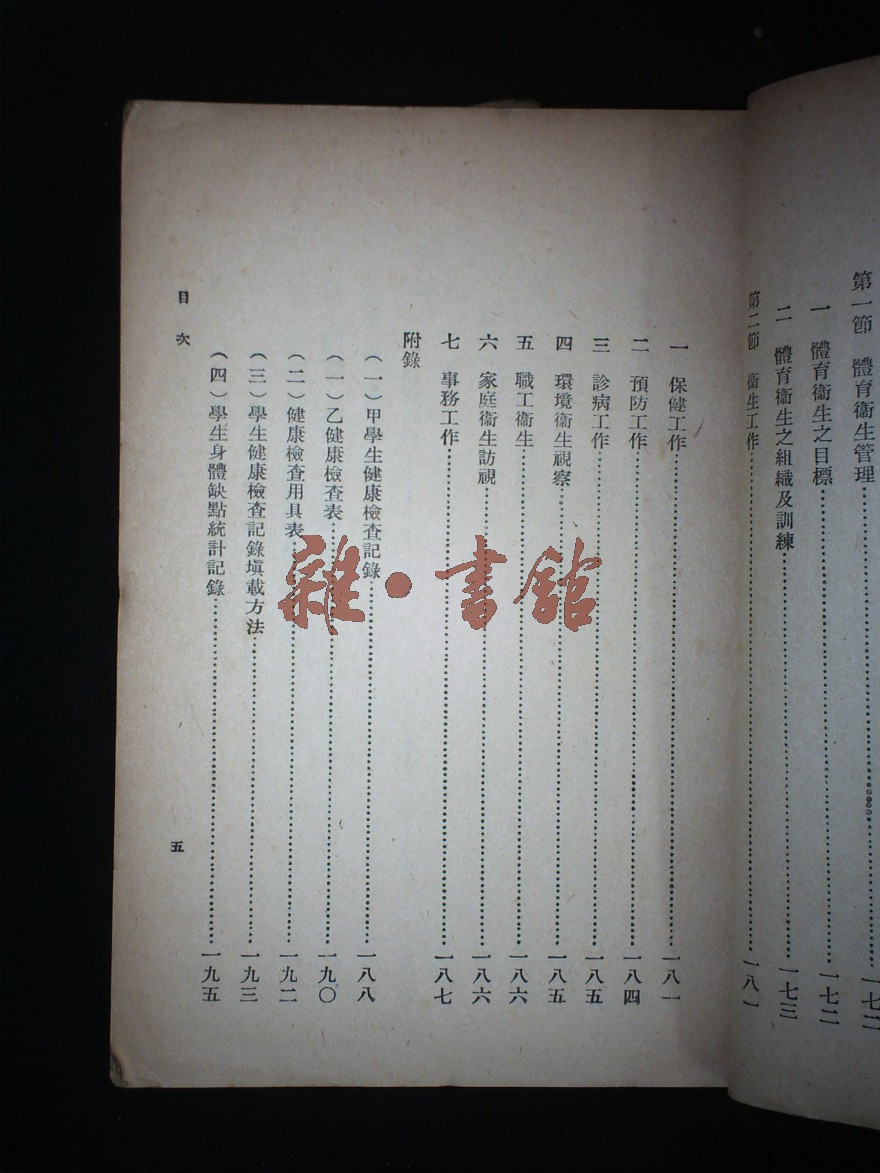 第一節　體育衞生管理……一七二
一　體育衞生之目標……一七二
二　體育衞生之組織及訓練……一七三
第二節　衞生工作……一八一
一　保健工作……一八一
二　預防工作……一八四
三　診病工作……一八五
四　環境衞生視察……一八五
五　職工衞生……一八六
六　家庭衞生訪視……一八六
七　事務工作……一八七
附錄
（一）甲學生健康檢查記錄……一八八
（一）乙健康檢查表……一九〇
（二）健康檢查用具表……一九二
（三）學生健康檢查記錄塡載方法……一九三
（四）學生身體缺點統計記錄……一九五
目次
五
雜·書館